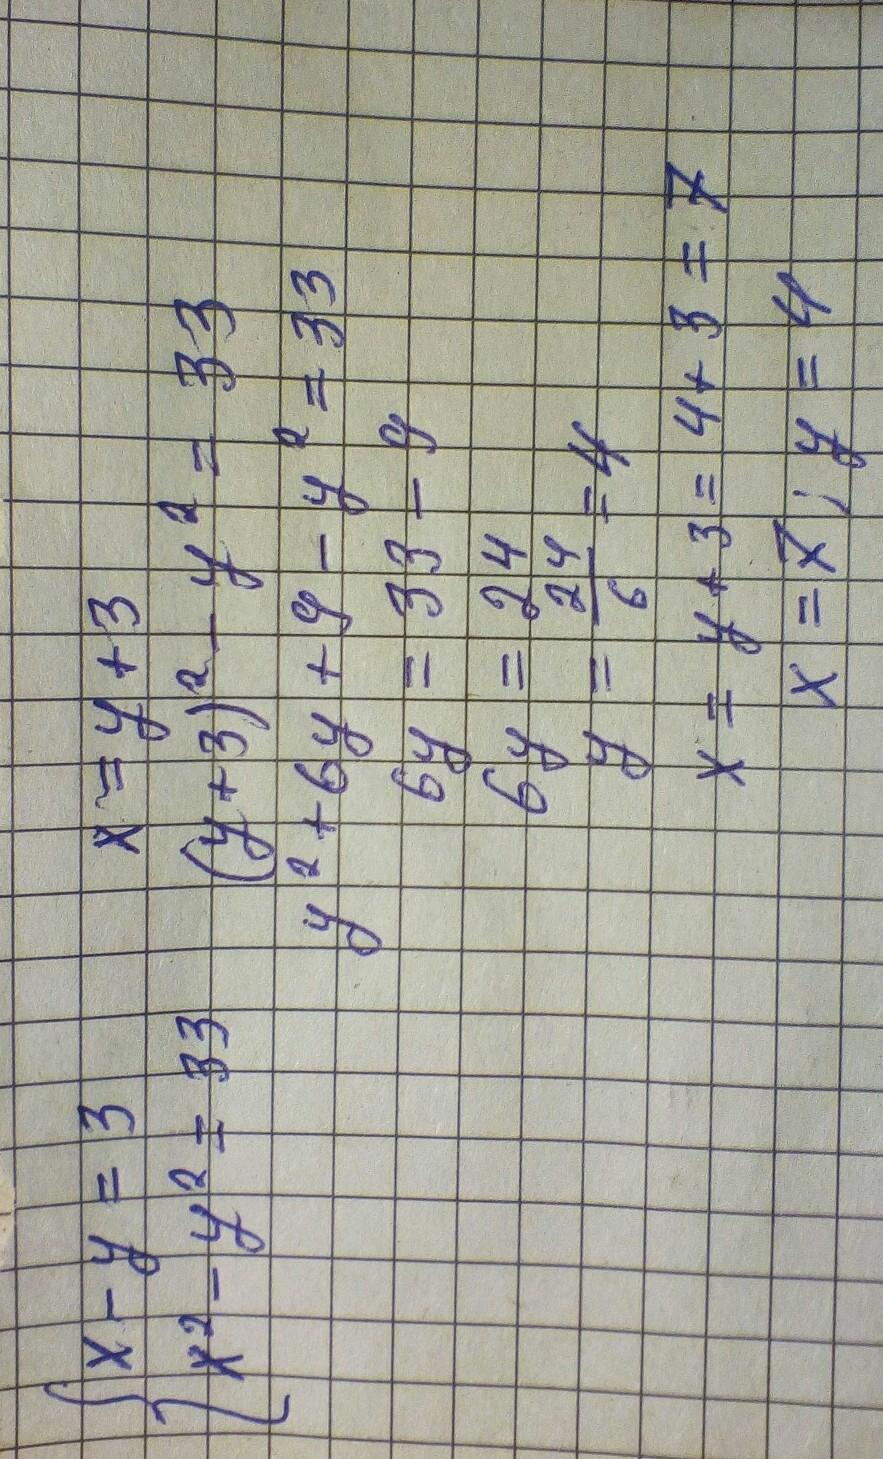 { x - y = 3
x² - y² = 33
x = y + 3
(y + 3)² - y² = 33
y² + 6y + 9 - y² = 33
6y = 33 - 9
6y = 24
y = 24/6 = 4
x = y + 3 = 4 + 3 = 7
x = 7 ; y = 4